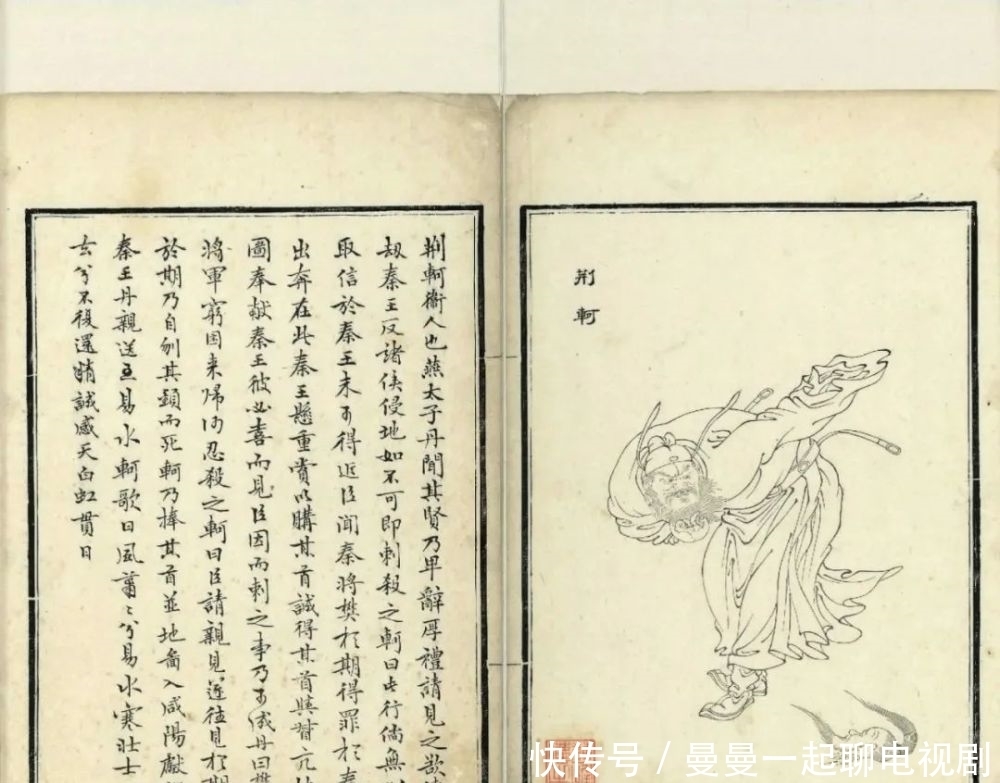 荆軻
荊軻衞人也燕太子丹聞其賢乃卑辭厚禮請見之欲
刼秦王反諸侯侵地如不可即刺殺之軻曰此行倘無
取信於秦王未可得近臣聞秦将樊於期得罪於秦
出奔在此秦王懸重賞以購其首誠得其首與督亢
圖奉献秦王彼必喜而見臣因而刺之事乃可成丹曰樊
将軍窮困来歸何忍殺之軻曰臣請親見遂往見於期
於期乃自刎其頸而死軻乃捧其首並地啚入咸陽献
秦王丹親送至易水軻歌曰風蕭〻兮易水寒壮士
去兮不復還精誠感天白虹貫日
快传号 / 曼曼一起聊电视剧